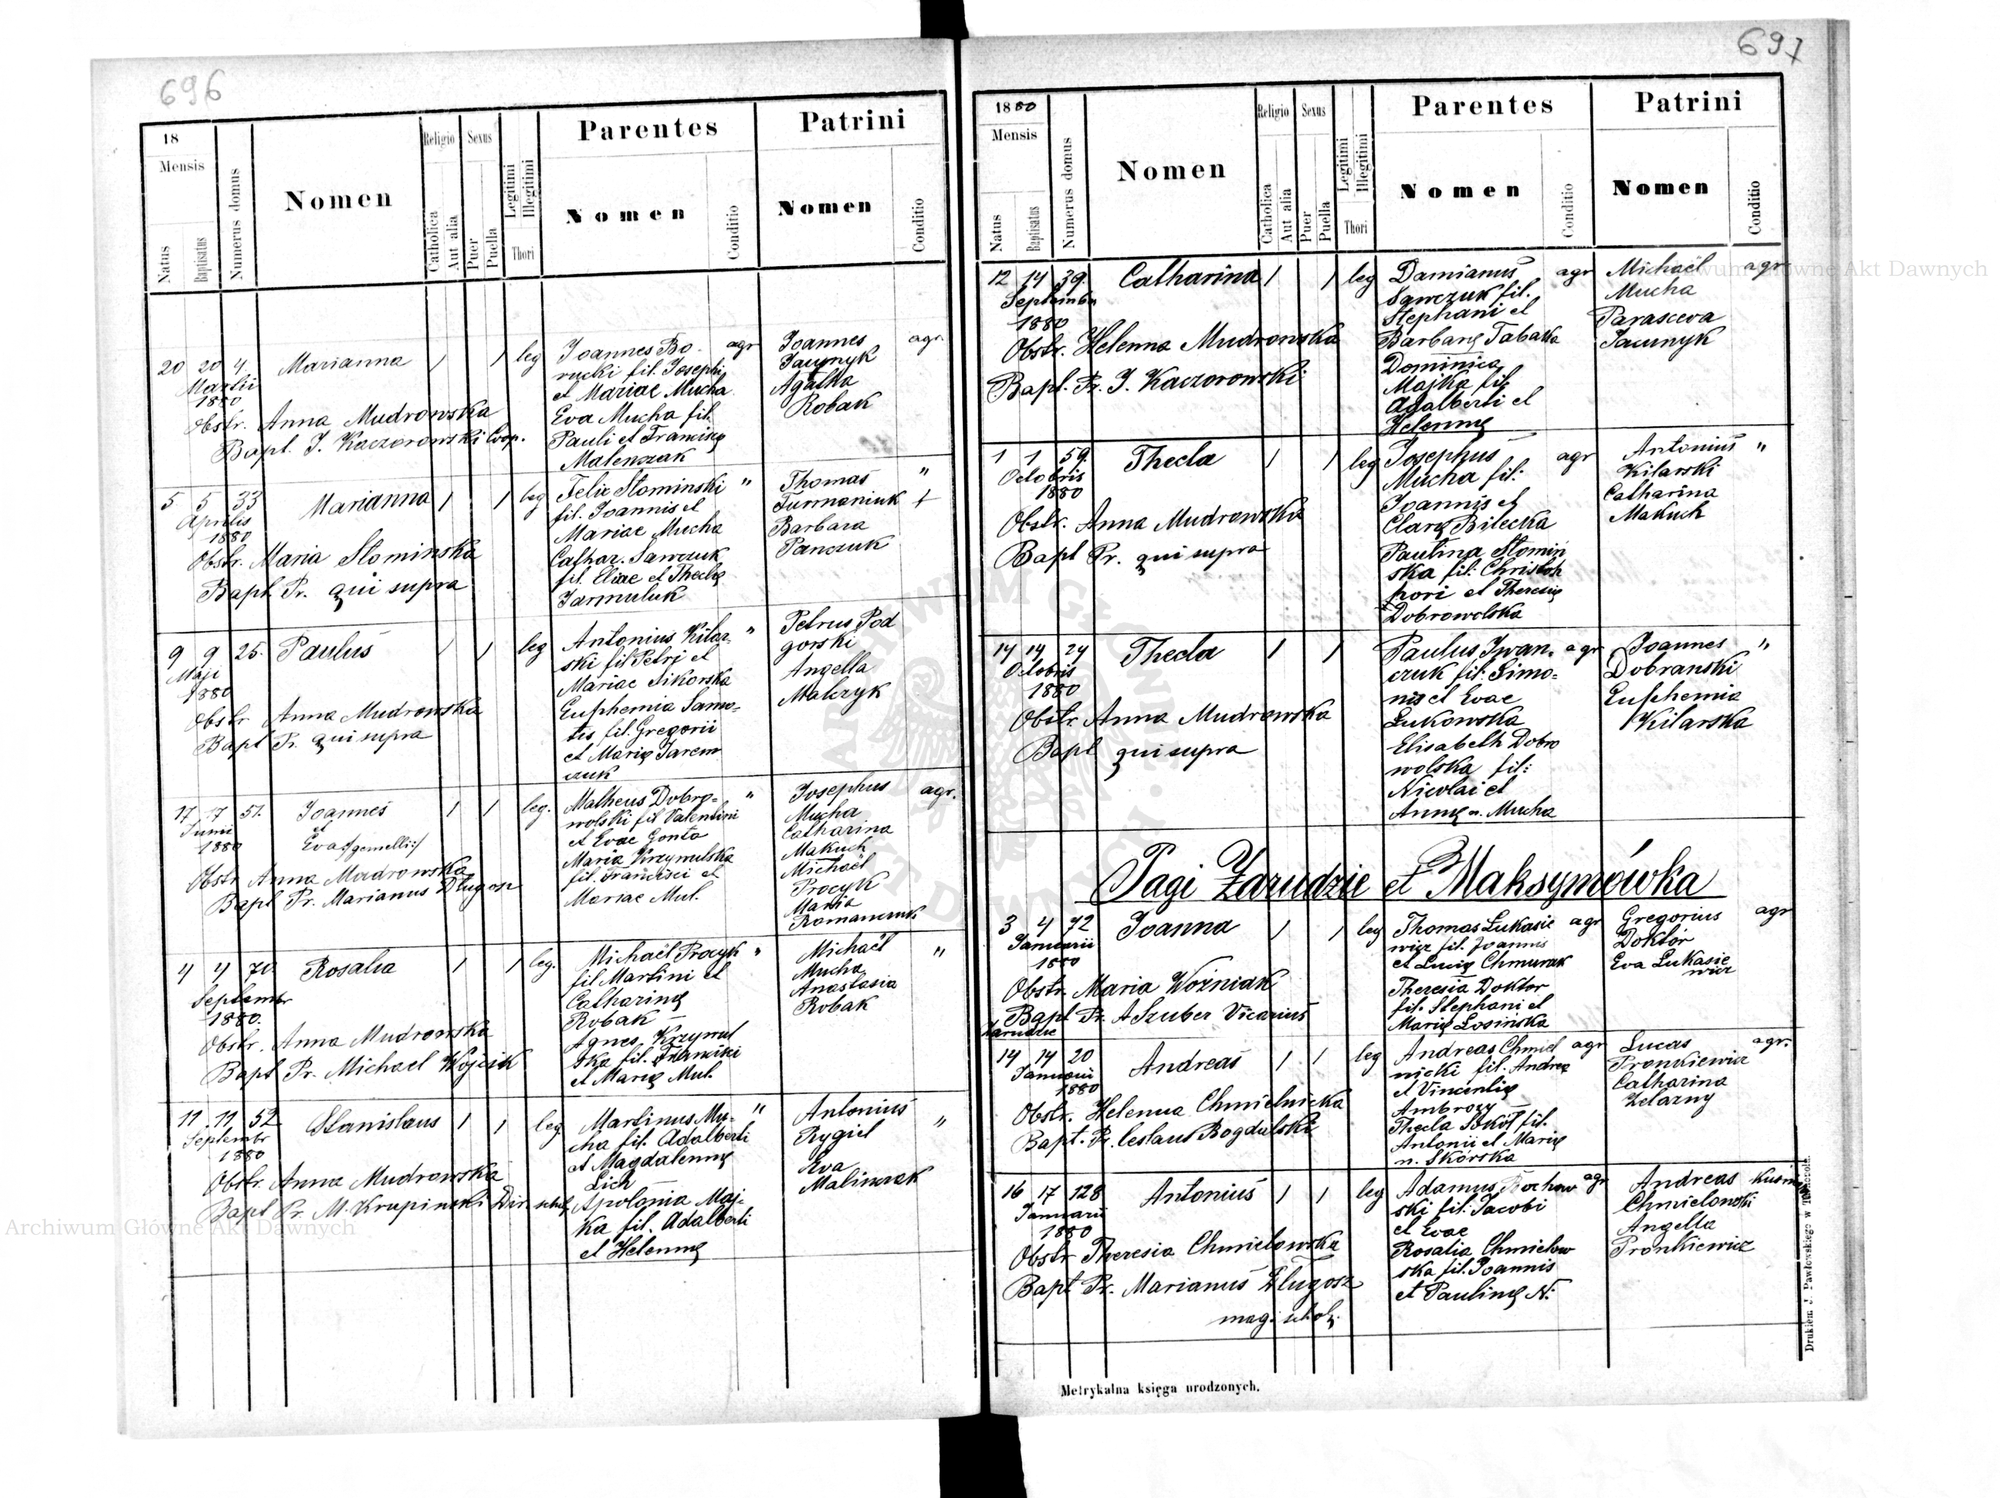 696
18
Mensis
Natus
Baptisatus
Numerus domus
Nomen
Religio
Catholica
Aut alia
Sexus
Puer
Puella
Legitimi
Illegitimi
Thori
Parentes
Nomen
Conditio
Patrini
Nomen
Conditio
20 20 4. Marianna 1 1 leg
Martii
1880
Obstr. Anna Mudrowska
Bapt. J. Kaczorowski Coop.
Joannes Bo- agr
rucki fil. Josephi
et Mariae Mucha
Eva Mucha fil.
Pauli et Francisę
Malenczak
Joannes agr.
Jacynyk
Agatha
Robak
5 5 33 Marianna 1 1 leg
Aprilis
1880
Obstr. Maria Slominska
Bapt Pr. qui supra
Felix Slominski "
fil. Joannis et
Mariae Mucha
Cathar. Sawczuk
fil. Eliae et Theclę
Jarmuluk
Thomas "
Furmaniuk +
Barbara
Panczuk
9 9 25. Paulus 1 1 leg
Maji
1880
Obstr Anna Mudrowska
Bapt Pr. qui supra
Antonius Kilar- "
ski fil Petri et
Mariae Sikorska
Euphemia Samo-
tis fil. Gregorii
et Marię Jarem
czuk
Petrus Pod
gorski
Angella
Malczyk
17 17 51. Joannes 1 1 leg.
Junii et
1880 Eva /:gemelli:/
Obstr Anna Mudrowska
Bapt Pr. Marianus Długosz
Matheus Dobro- "
wolski fil Valentini
et Evae Gonta
Maria Krzywulska
fil. Francisci et
Mariae Mul.
Josephus agr.
Mucha
Catharina
Makuch
Michaël
Procyk
Maria
Romanczuk
4 4 70. Rosalia 1 1 leg.
Septembr
1880.
Obstr. Anna Mudrowska
Bapt Pr. Michael Wójcik
Michaël Procyk "
fil Martini et
Catharinę
Robak
Agnes Krzywul
ska fil. Francisci
et Marię Mul.
Michaël "
Mucha
Anastasia
Robak
11 11 52 Stanislaus 1 1 leg
Septembr
1880
Obstr. Anna Mudrowska
Bapt Pr. M. Krupinski Dir. schol
Martinus Mu- "
cha fil. Adalberti
et Magdalennę
Lich
Apolonia Maj-
ka fil. Adalberti
et Helennę
Antonius "
Rygiel
Eva
Malinczak
697
1880
Mensis
Natus
Baptisatus
Numerus domus
Nomen
Religio
Catholica
Aut alia
Sexus
Puer
Puella
Legitimi
Illegitimi
Thori
Parentes
Nomen
Conditio
Patrini
Nomen
Conditio
12 14 39. Catharina 1 1 leg
Septembr
1880
Obstr. Helenna Mudrowska
Bapt. Pr. J. Kaczorowski
Damianus agr
Sawczuk fil.
Stephani et
Barbarę Tabaka
Dominica
Majka fil.
Adalberti et
Helennę
Michaël agr
Mucha
Parasceva
Jacunyk
1 1 59. Thecla 1 1 leg
Octobris
1880
Obstr. Anna Mudrowska
Bapt Pr. qui supra
Josephus agr
Mucha fil:
Joannis et
Clarę Bilecka
Paulina Slomin
ska fil: Christoh
phori et Theresię
Dobrowolska
Antonius "
Kilarski
Catharina
Makuch
14 14 24 Thecla 1 1
Octobris
1880
Obstr Anna Mudrowska
Bapt qui supra
Paulus Iwan- agr
czuk fil: Simo-
nis et Evae
Łukowska
Elisabeth Dobro
wolska fil:
Nicolai et
Annę n. Mucha
Joannes "
Dobranski
Euphemia
Kilarska
Pagi Zarudzie et Maksymówka
3 4 72 Joanna 1 1 leg
Januarii
1880
Obstr. Maria Wozniak
Bapt Pr. A Szuber Vicarius
Zarudzie
Thomas Lukasie agr
wicz fil. Joannis
et Lucię Chmurak
Theresia Doktor
fil. Stephani et
Marię Losinska
Gregorius agr
Doktór
Eva Lukasie
wicz
14 14 20 Andreas 1 1 leg
Januarii
1880
Obstr. Helenna Chmielnicka
Bapt. Pr. Ceslaus Bogdalski
Andreas Chmiel agr
nicki fil. Andreę
et Vincentię
Ambrozy
Thecla Sokół fil.
Antonii et Marię
n. Skórska
Lucas agr.
Pronkiewicz
Catharina
Zelazny
16 17 128 Antonius 1 1 leg
Januarii
1880
Obstr Theresia Chmielowska
Bapt Pr. Marianus Długosz
mag. schol.
Adamus Rochow agr
ski fil. Jacobi
et Evae
Rosalia Chmielow
ska fil. Joannis
et Paulinę N.
Andreas
Chmielowski
Angella
Pronkiewicz
Metrykalna księga urodzonych.
Drukiem J. Pawłowskiego w Tarnopolu.
Archiwum Główne Akt Dawnych
Archiwum Główne Akt Dawnych